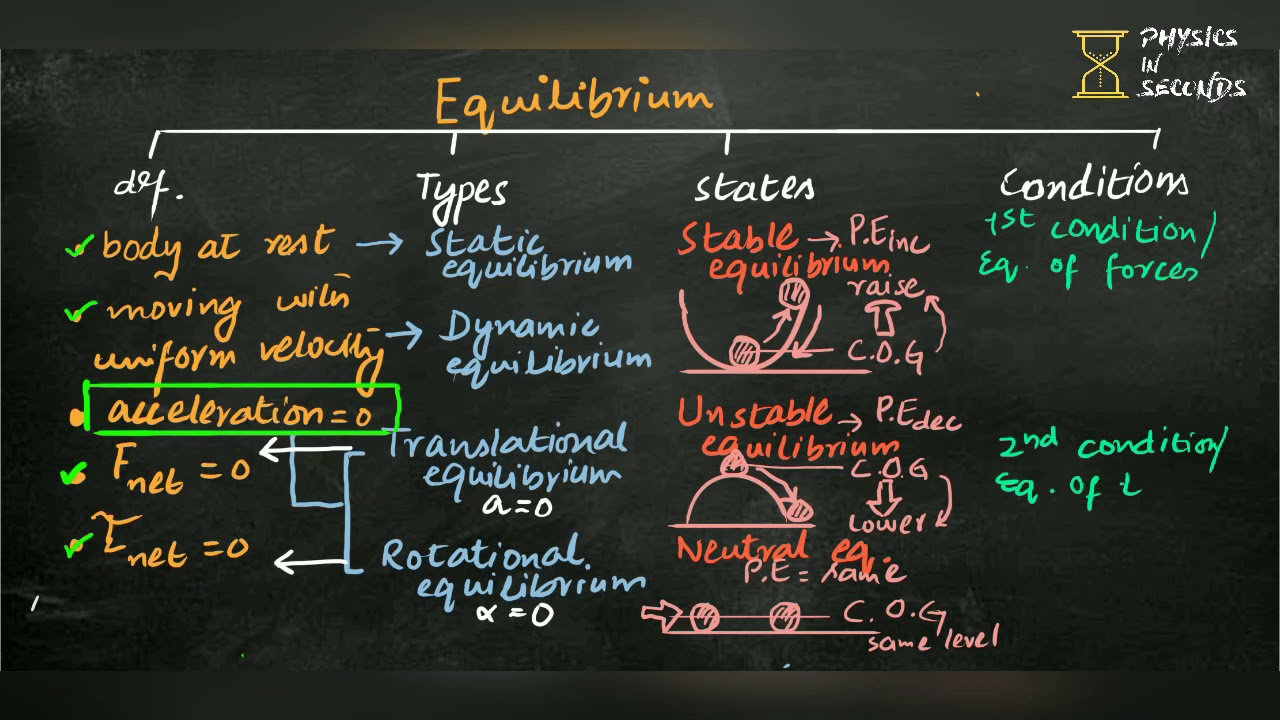 PHYSICS
IN
SECONDS
Equilibrium
def.
body at rest
moving with
uniform velocity
acceleration = 0
Fnet = 0
τnet = 0
Types
Static
equilibrium
Dynamic
equilibrium
Translational
equilibrium
a = 0
Rotational.
equilibrium
α = 0
states
Stable → P.Einc
equilibrium
raise
C.O.G
Unstable → P.Edec
equilibrium
C.O.G
Lower
Neutral eq.
P.E = same
C.O.G
same level
Conditions
1st condition/
Eq. of forces
2nd condition/
Eq. of τ